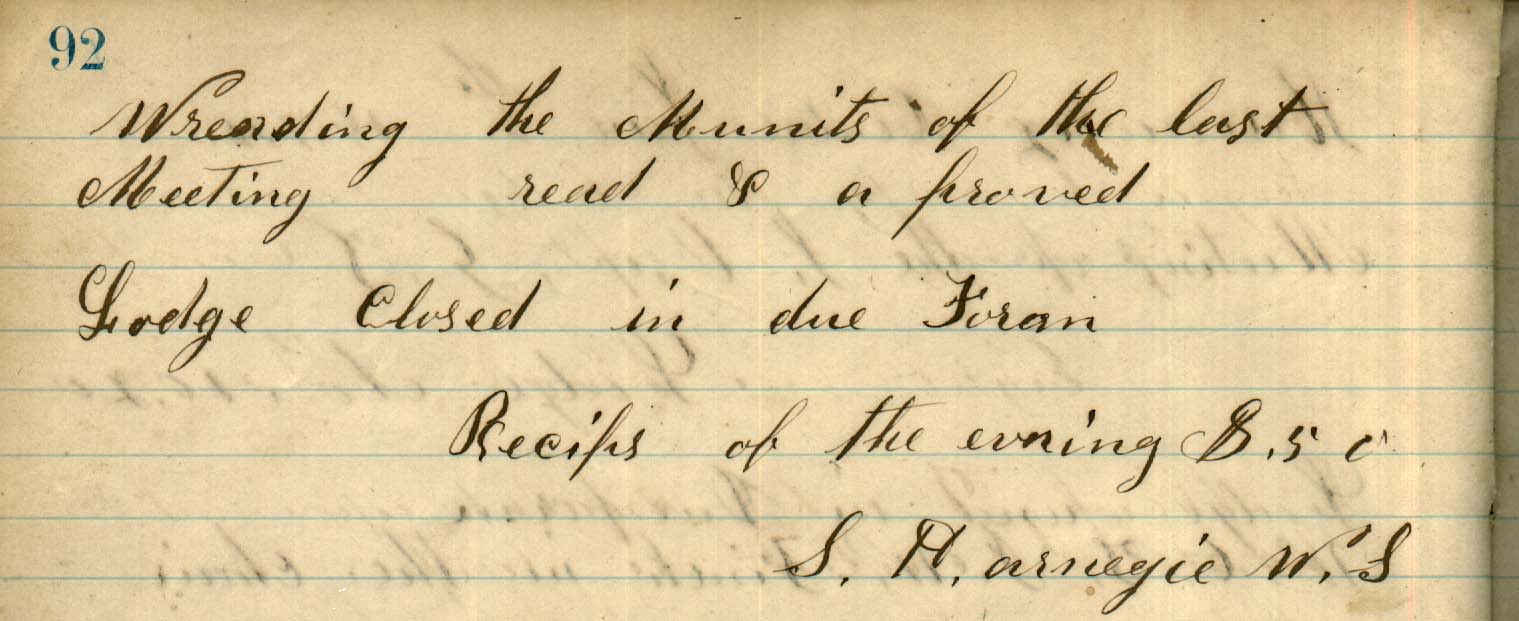 92
Wreading the Munits of the last
Meeting read & a proved
Lodge Closed in due Foram
Recips of the evening $.50
S. H. arnegie W. S